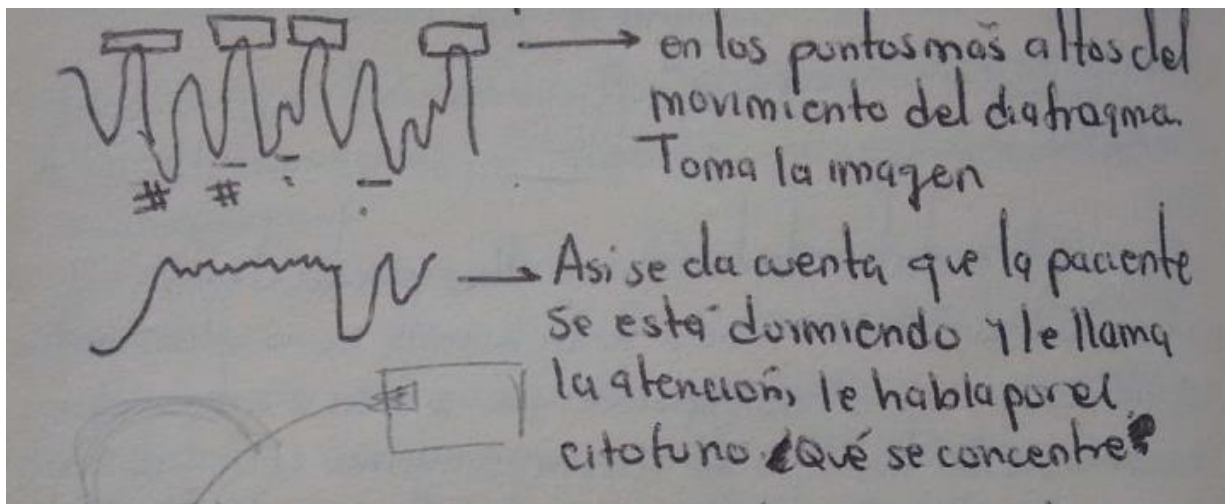 en los puntos mas altos del
movimiento del diafragma.
Toma la imagen
# #
Asi se da cuenta que la paciente
se está dormiendo y le llama
la atención, le habla por el
citofuno. ¿Qué se concentre?